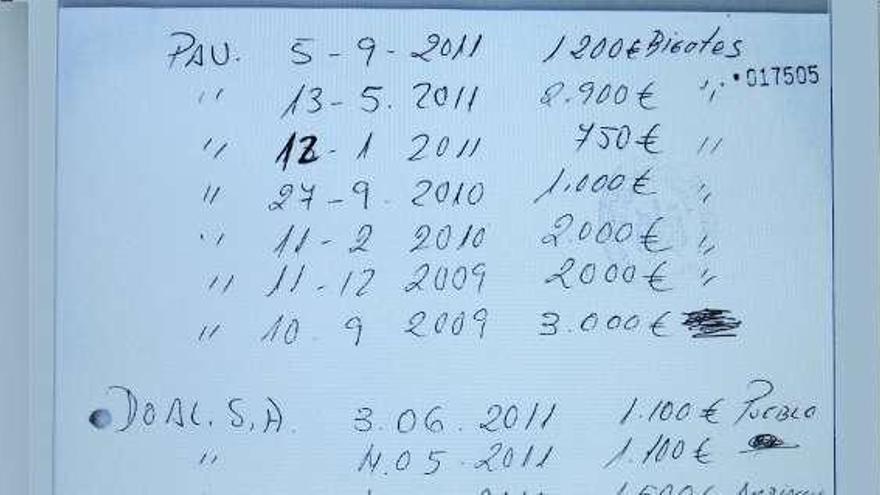 PAU. 5-9-2011 1200€ Bigotes
•017505
" 13-5.2011 2.900€ "
" 12-1 2011 750€ "
" 27-9 2010 1.000€ "
" 11-2 2010 2000€ "
" 11-12 2009 2000€ "
" 10.9 2009 3.000€
DOAL.S,A. 3.06.2011 1.100€ PUEBLO
" 11.05-2011 1.100€